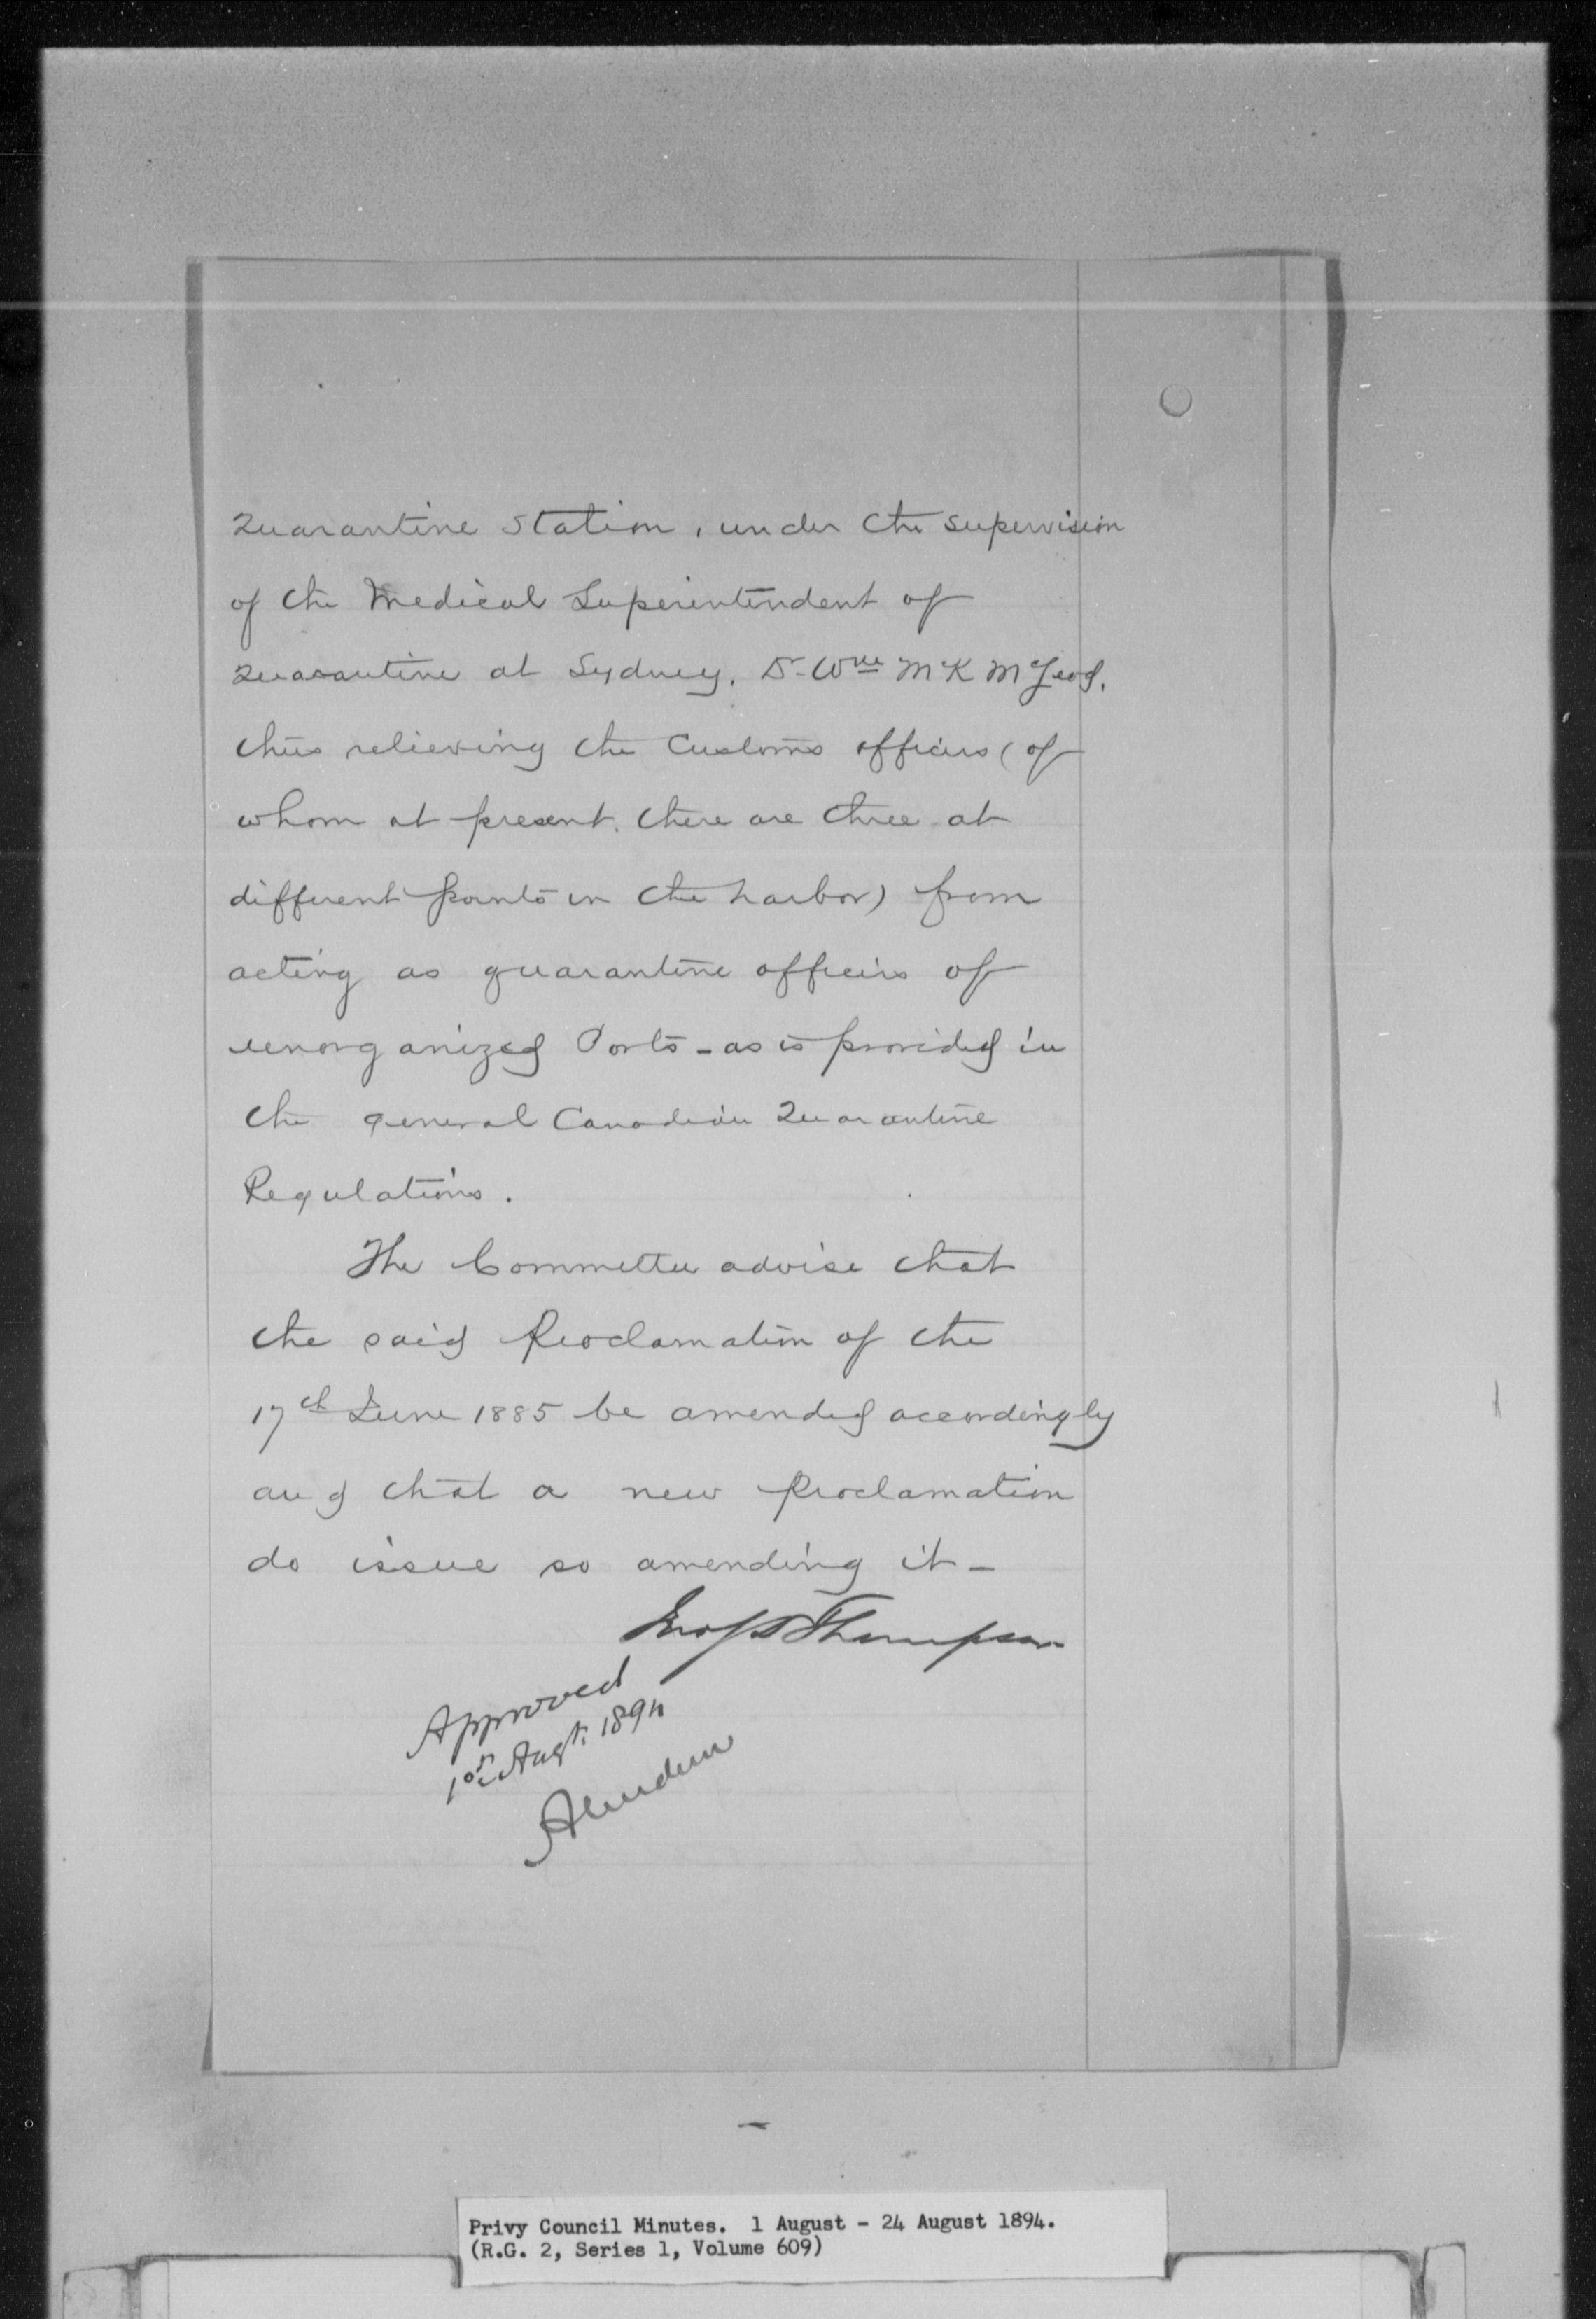 Quarantine Station, under the supervision
of the Medical Superintendent of
Quarantine at Sydney, Dr. Wm McK McLeod,
thus relieving the Customs officers (of
whom at present there are three at
different points in the harbor) from
acting as quarantine officers of
unorganized Ports - as is provided in
the general Canadian Quarantine
Regulations.
The Committee advise that
the said Proclamation of the
17th June 1885 be amended accordingly
and that a new Proclamation
do issue so amending it -
Jno S D Thompson
Approved
1st Augt. 1894
Aberdeen
Privy Council Minutes. 1 August - 24 August 1894.
(R.G. 2, Series 1, Volume 609)